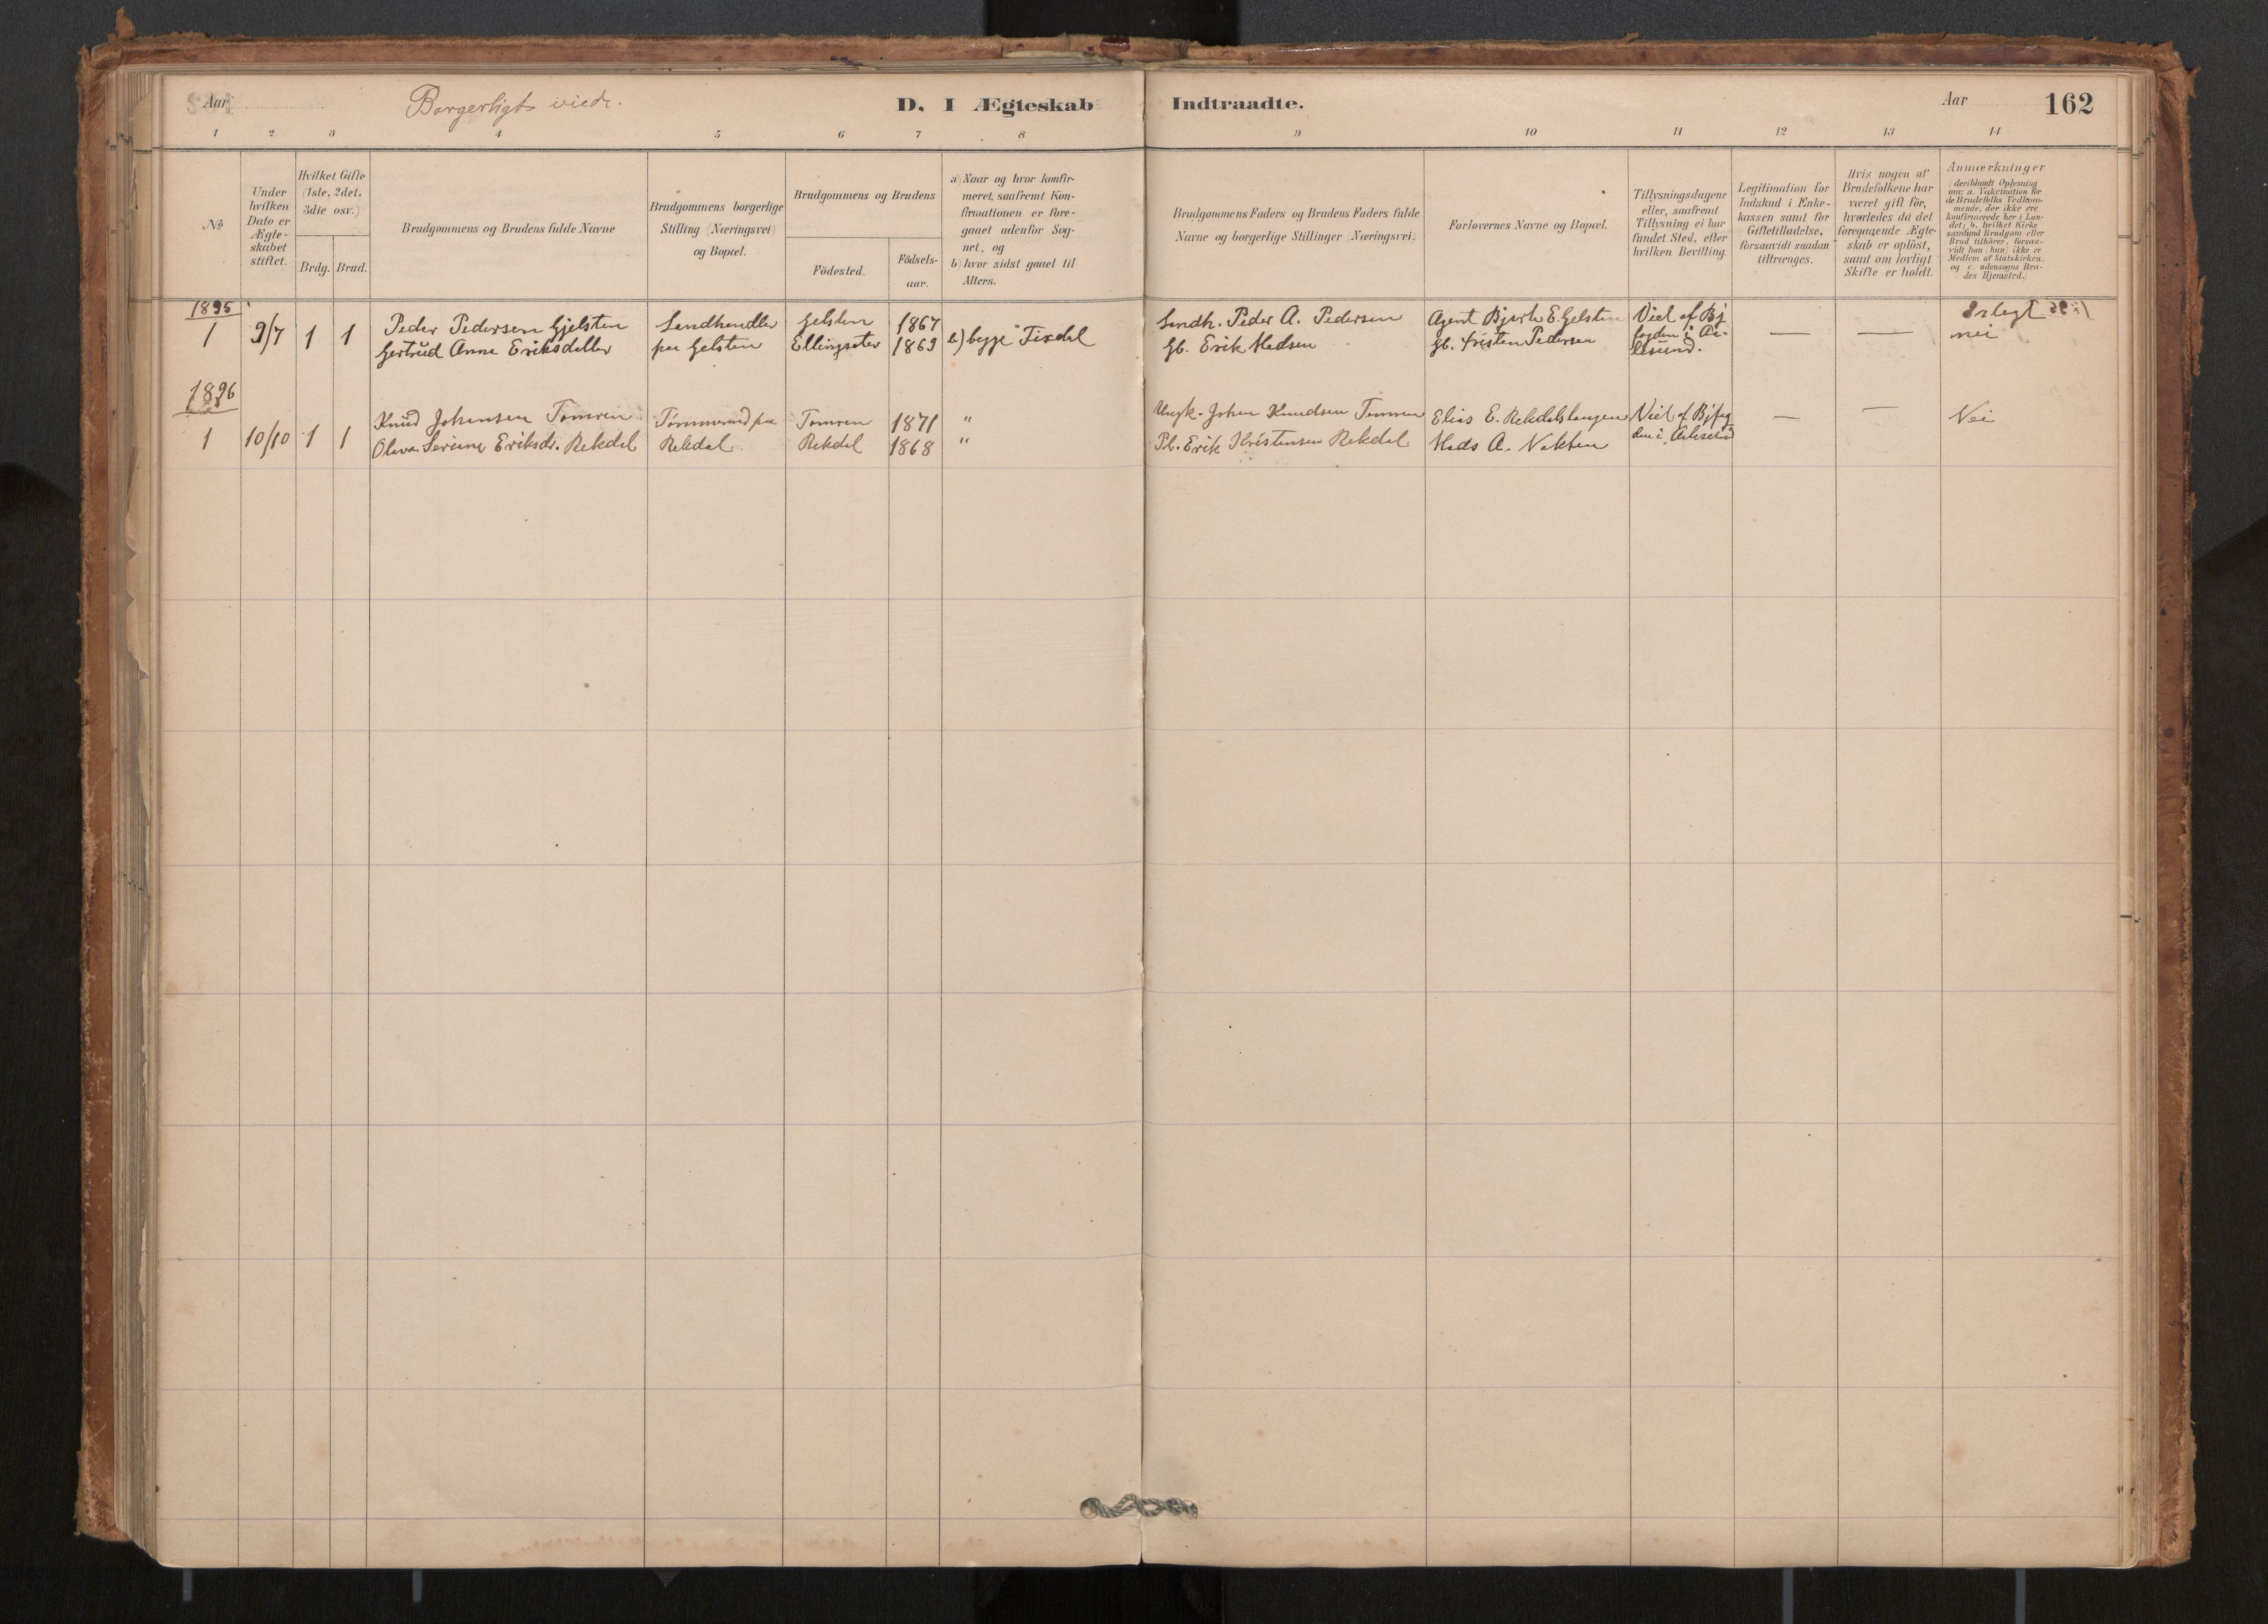 Aar
Borgerligt viede.
D. I Ægteskab Indtraadte.
Aar
162
1 2 3 4 5 6 7 8 9 10 11 12 13 14
No
Under
hvilken
Dato er
Ægte-
skabet
stiftet.
Hvilket Gifte
(1ste, 2det,
3die osv.)
Brdg. Brud.
Brudgommens og Brudens fulde Navne
Brudgommens borgerlige
Stilling (Næringsvei)
og Bopæl.
Brudgommens og Brudens
Födested.
Födsels-
aar.
a) Naar og hvor konfir-
meret, saafremt Kon-
firmationen er fore-
gaaet udenfor Sog-
net, og
b) hvor sidst gaaet til
Alters.
Brudgommens Faders og Brudens Faders fulde
Navne og borgerlige Stillinger (Næringsvei)
Forlovernes Navne og Bopæl.
Tillysningsdagene
eller, saafremt
Tillysning ei har
fundet Sted, efter
hvilken Bevilling.
Legitimation for
Indskud i Enke-
kassen samt for
Giftetilladelse,
forsaavidt saadan
tiltrænges.
Hvis nogen af
Brudefolkene har
været gift för,
hvorledes da det
foregaaende Ægte-
skab er oplöst,
samt om lovligt
Skifte er holdt.
Anmærkninger
(deriblandt Oplysning
om: a. Vakcination for
de Brudefolks Vedkom-
mende, der ikke ere
konfirmerede her i Lan-
det; b. hvilket Kirke
samfund Brudgom eller
Brud tilhörer, forsaa-
vidt han (hun) ikke er
Medlem af Statskirken.
og c. udensogns Bru-
des Hjemsted.)
1895
1 9/7 1 1
Peder Pedersen Gjelsten
Gertrud Anne Eriksdatter
Landhandler
paa Gelsten
Gelsten 1867
Ellingseter 1869
b) begge Fixdal
Landh. Peder A. Pedersen
Gb. Erik Madsen
Agent Bjarte E. Gelsten
Gb. Kristen Pedersen
Viet af By
fogden i Aa-
lesund.
— —
nei
1896
1 10/10 1 1
Knud Johansen Tomren
Olava Serine Eriksdr. Rekdal
Tømmermand paa
Rekdal
Tomren 1871 "
Rekdal 1868 "
Johan Knudsen Tomren
Pl. Erik Kristensen Rekdal
Elias E. Rekdalshaugen
Mads A. Nakken
Viet af Byfog
den i Aalesund
— —
Nei